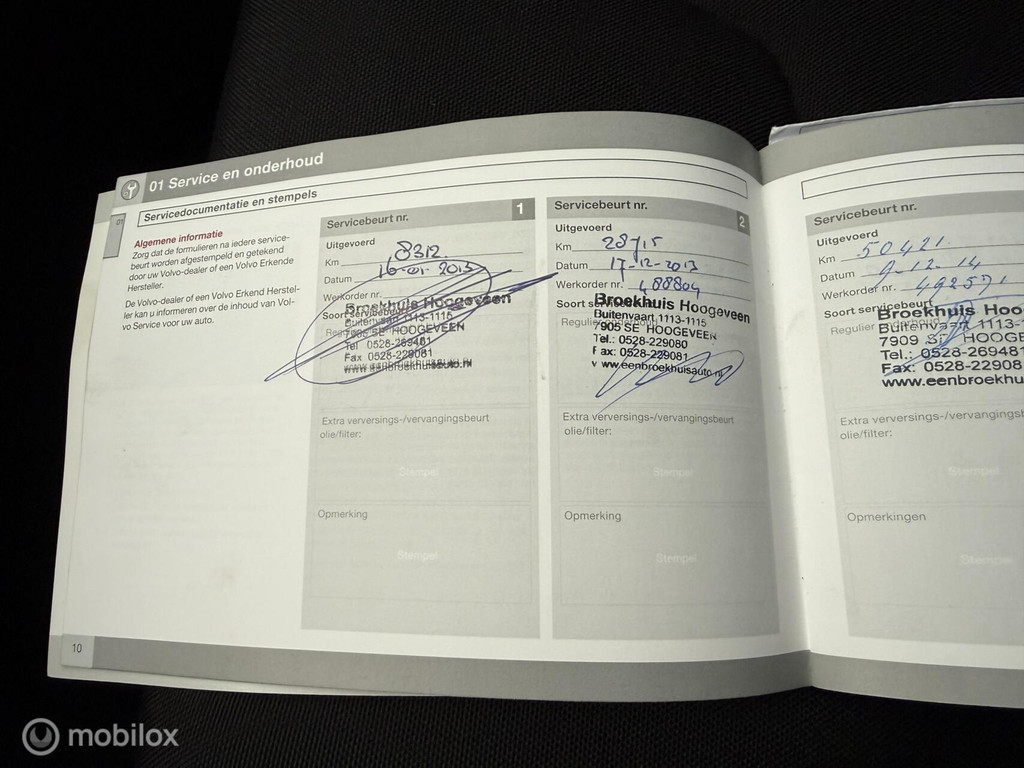 01 Service en onderhoud
01
Servicedocumentatie en stempels
Algemene informatie
Zorg dat de formulieren na iedere service-
beurt worden afgestempeld en getekend
door uw Volvo-dealer of een Volvo Erkende
Hersteller.
De Volvo-dealer of een Volvo Erkend Herstel-
ler kan u informeren over de inhoud van Vol-
vo Service voor uw auto.
10
Servicebeurt nr. 1
Uitgevoerd
Km 8312
Datum 16-01-2013
Werkorder nr.
Soort servicebeurt
Broekhuis Hoogeveen
Buitenvaart 1113-1115
7905 SE HOOGEVEEN
Tel 0528-269481
Fax 0528-229081
www.eenbroekhuisauto.nl
Extra verversings-/vervangingsbeurt
olie/filter:
Stempel
Opmerking
Stempel
Servicebeurt nr. 2
Uitgevoerd
Km 28715
Datum 17-12-2013
Werkorder nr. 488804
Soort
Broekhuis Hoogeveen
Regulier
Buitenvaart 1113-1115
7905 SE HOOGEVEEN
Tel.: 0528-229080
Fax: 0528-229081
www.eenbroekhuisauto.nl
Extra verversings-/vervangingsbeurt
olie/filter:
Stempel
Opmerking
Stempel
Servicebeurt nr.
Uitgevoerd
Km 50421
Datum 9-12-14
Werkorder nr. 492571
Soort servicebeurt
Broekhuis Hoo
Regulier
Buitenvaart 1113-
7909 SE HOOGE
Tel.: 0528-26948
Fax: 0528-22908
www.eenbroekhuis
Extra verversings-/vervangingsb
olie/filter:
Stempel
Opmerkingen
Stempel
mobilox